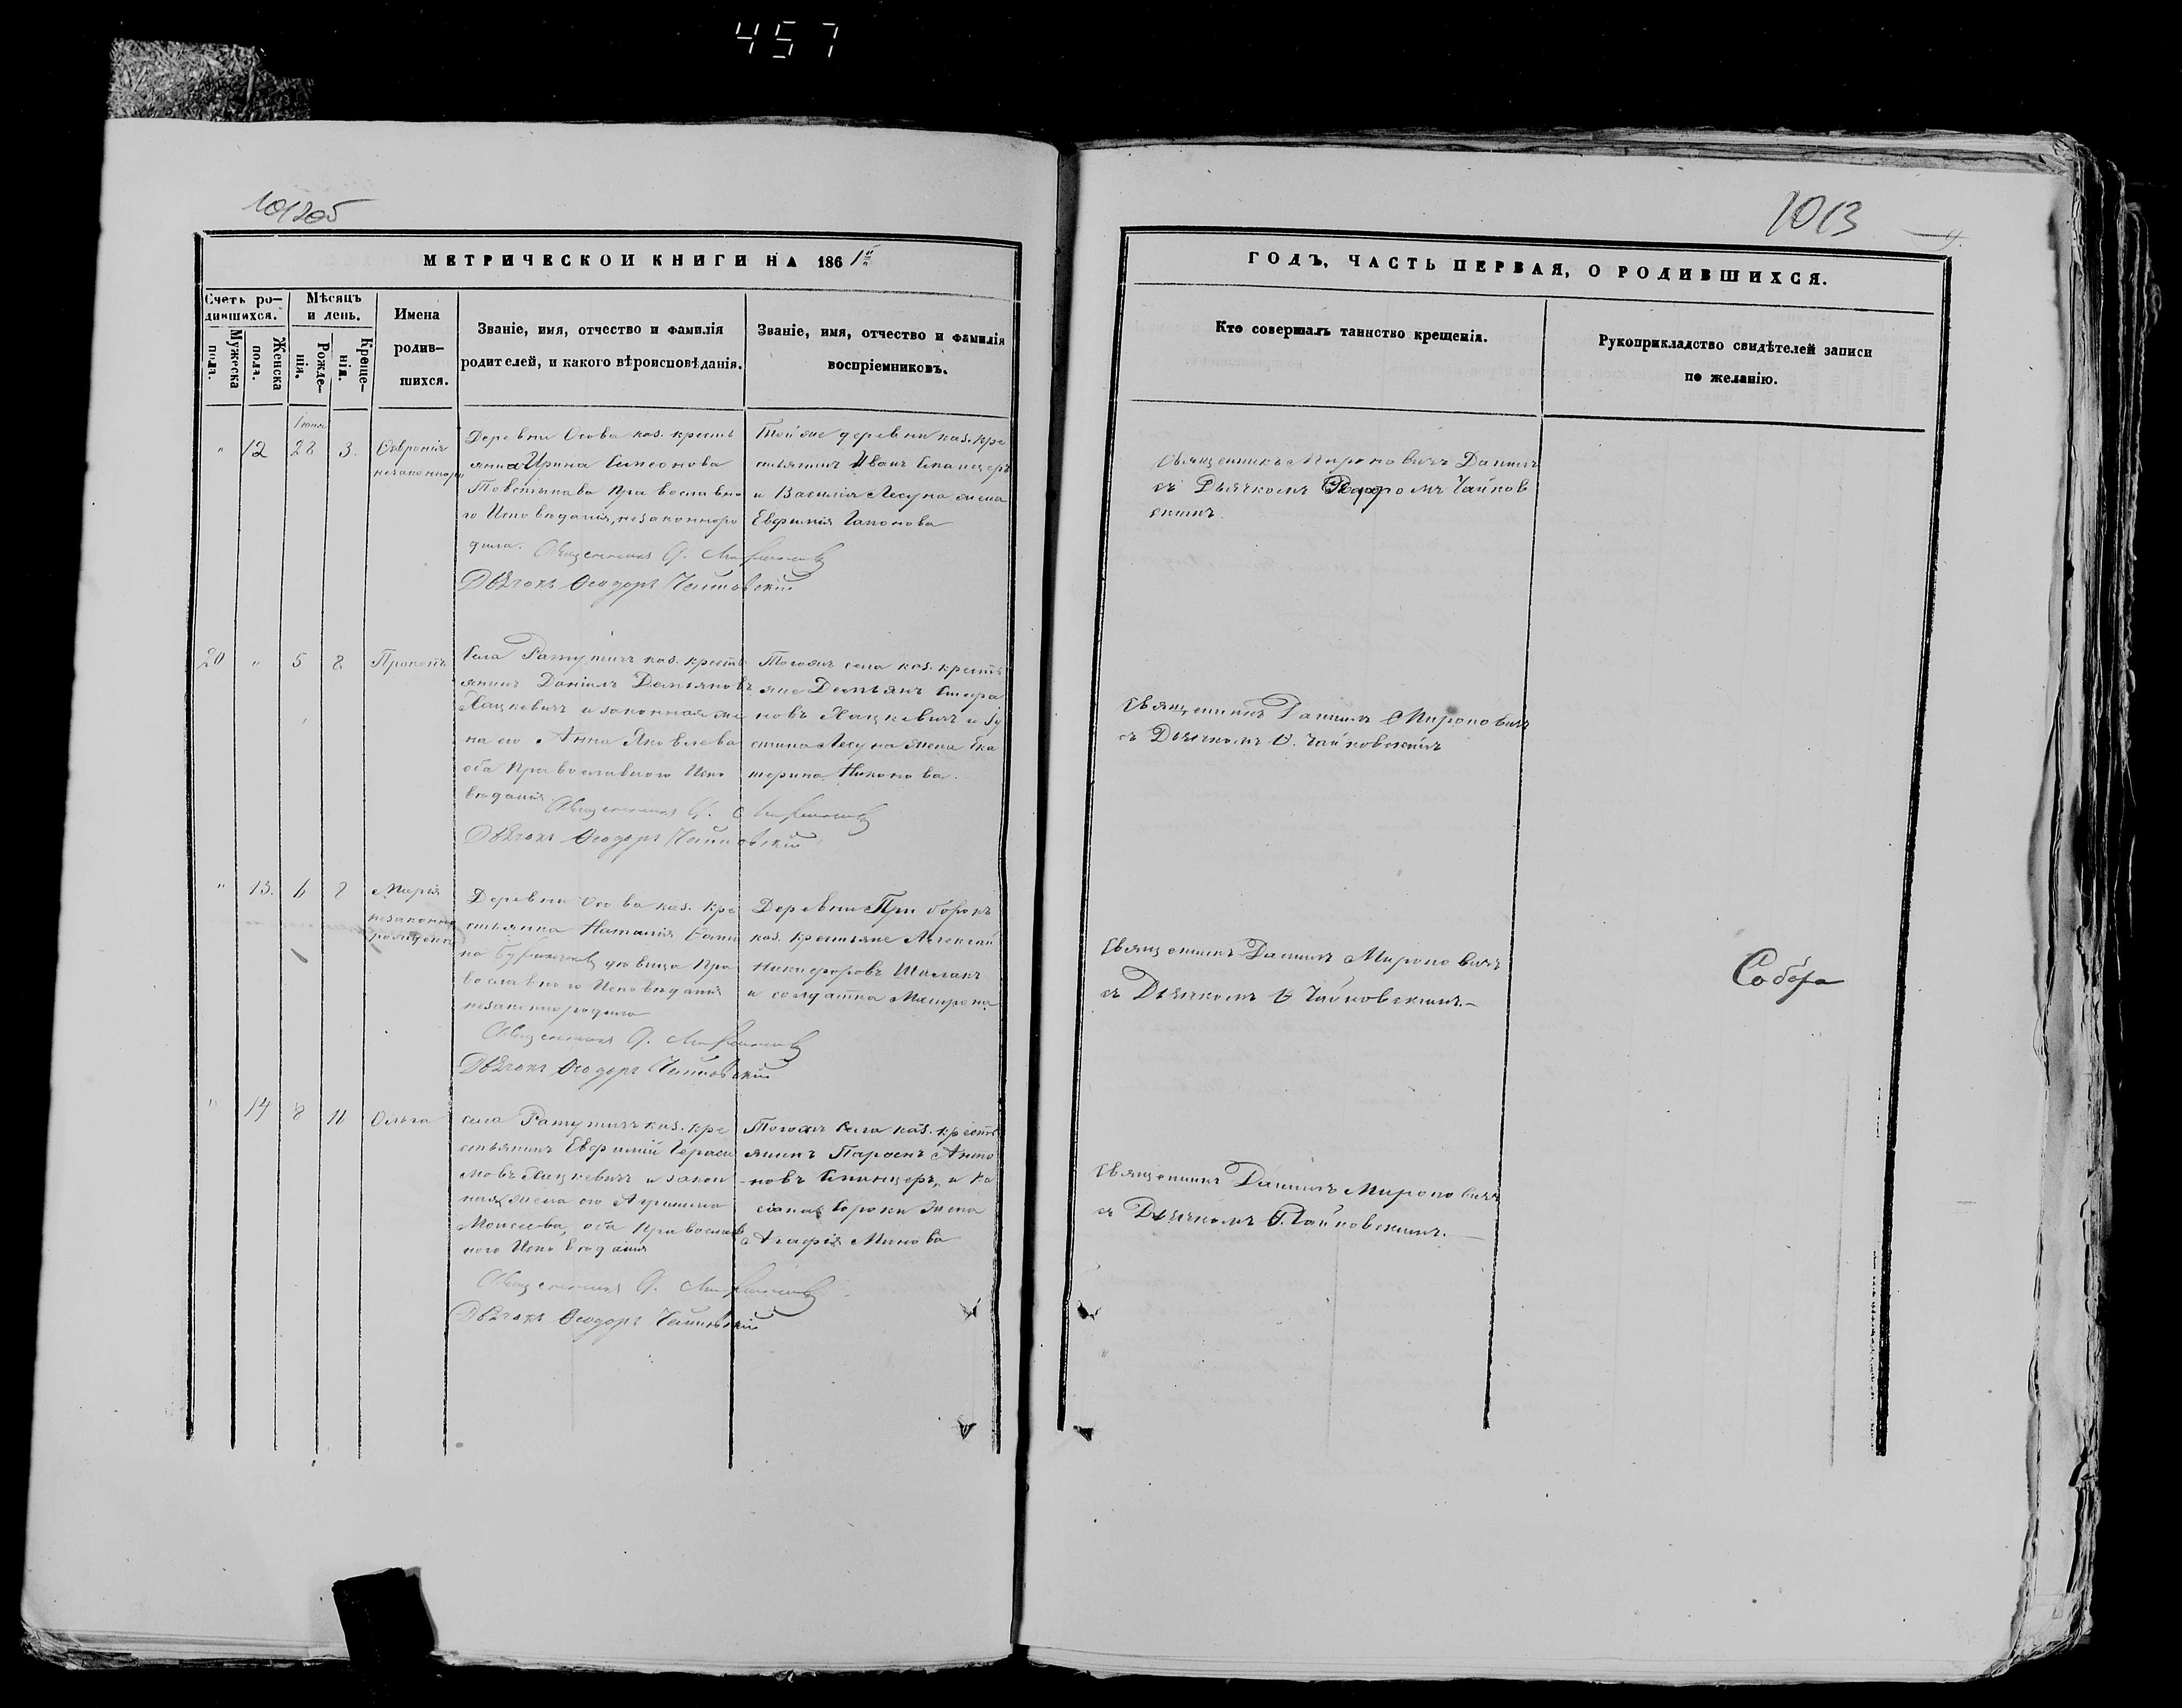 457
101205
1013
МЕТРИЧЕСКОЙ КНИГИ НА 1861й
ГОДЪ, ЧАСТЬ ПЕРВАЯ, О РОДИВШИХСЯ.
Счетъ ро-
дившихся.
Мужеска
пола.
Женска
пола.
Мѣсяцъ
и день.
Рожде-
нія.
Креще-
нія.
Имена
родив-
шихся.
Званіе, имя, отчество и фамилія
родителей, и какого вѣроисповѣданія.
Званіе, имя, отчество и фамилія
воспріемниковъ.
Кто совершалъ таинство крещенія.
Рукоприкладство свидѣтелей записи
по желанію.
Іюня
" 12 28 3.
Деревни Осова каз. кресть
янка Ирина Симеонова
Православна
го Исповѣданія, незаконноро
дила.
Священникъ
Дьячокъ Ѳеодоръ Чайковскій
Той же деревни каз. кре
стьянинъ Иванъ
и Василія Лесуна жена
Евфимія Гапонова
Священникъ Мироновичъ Даниилъ
съ Дьячкомъ Чайков
скимъ
20 " 5 8 Прокопъ
Села Ратутичъ каз. кресть
янинъ Даніилъ Демьяновъ
Хацкевичъ и законная же
на его Анна Яковлева
оба Православного Испо
вѣданія
Священникъ
Дьячокъ Ѳеодоръ Чайковскій
Тогожъ села каз. кресть
яне Демьянъ
новъ Хацкевичъ и Іу
стина Лесуна жена Ека
терина Никонова.
Священникъ Даниилъ Мироновичъ
съ Дьячкомъ Ѳ. Чайковскимъ
" 13. 6 8 Марія
незаконно
рожденна
Деревни Осова каз. кре
стьянка Наталія
дѣвица Пра
вославного Исповѣданія
незаконнородила
Священникъ
Дьячокъ Ѳеодоръ Чайковскій
Деревни Приборокъ
каз. крестьяне Алексѣй
Никифоровъ
и солдатка Матрона.
Священникъ Даниилъ Мироновичъ
съ Дьячкомъ Ѳ Чайковскимъ.—
Собора
" 14 8 11 Ольга
села Ратутичъ каз. кре
стьянинъ Евфимій Гераси
мовъ Хацкевичъ и закон
ная жена его
Моисеева, оба Православ
ного Исповѣданія
Священникъ
Дьячокъ Ѳеодоръ Чайковскій
Тогожъ села каз. кресть
янинъ Парѳенъ Анто
новъ и Ка
сіана Сороки жена
Агафія Минова
Священникъ Даниилъ Мироновичъ
съ Дьячкомъ Ѳ. Чайковскимъ.—